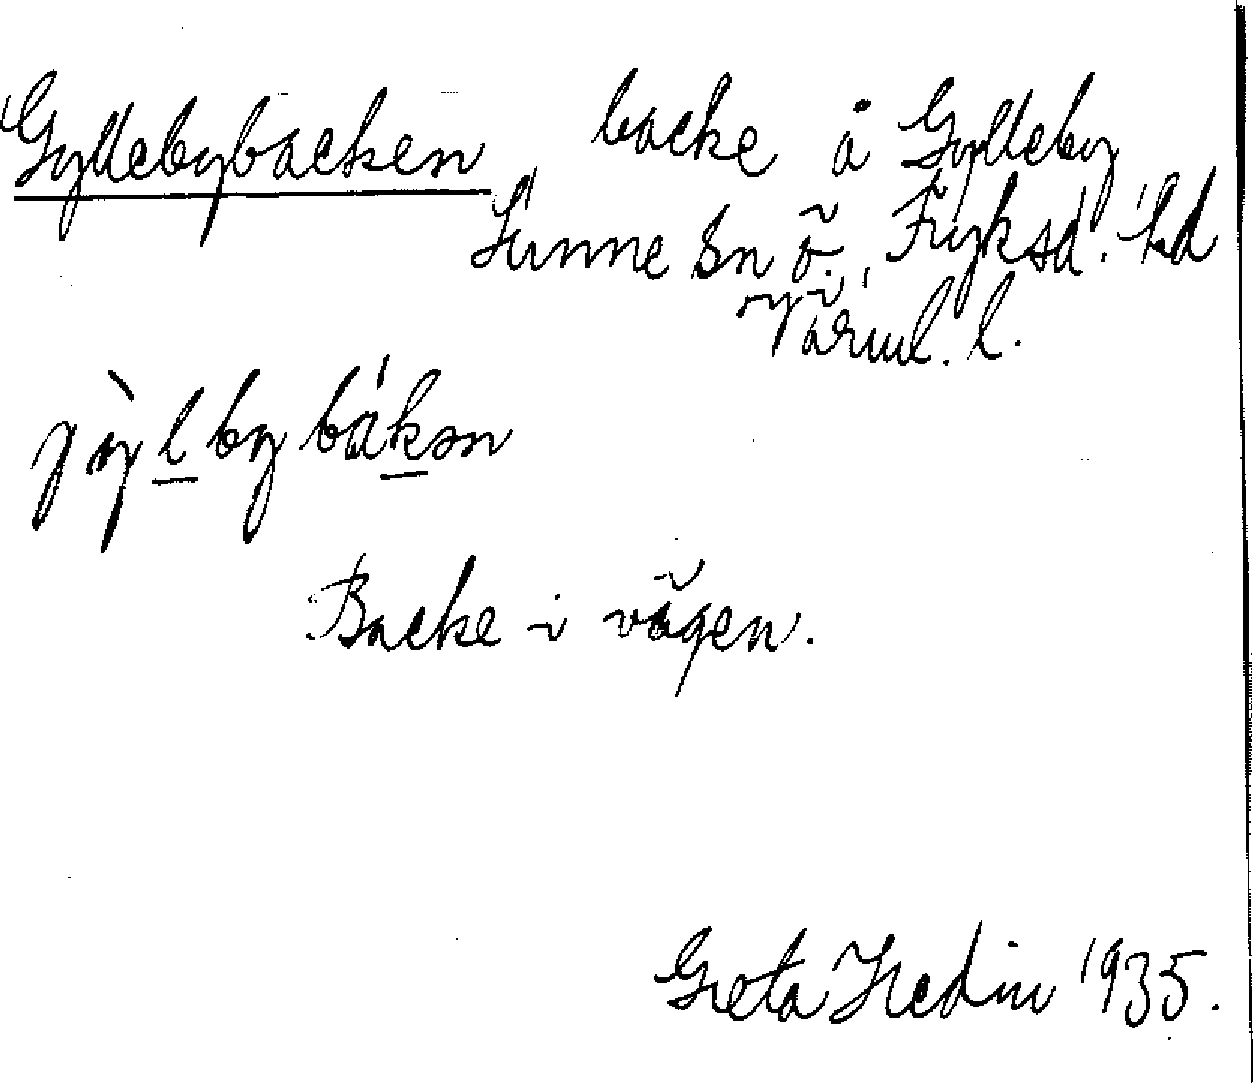 Gyllebybacken backe å Gylleby
Sunne sn Ö. Fryksd. hd
Värml. l.
jỳl̲by bák̲ən
Backe i vägen.
Greta Hedin 1935.